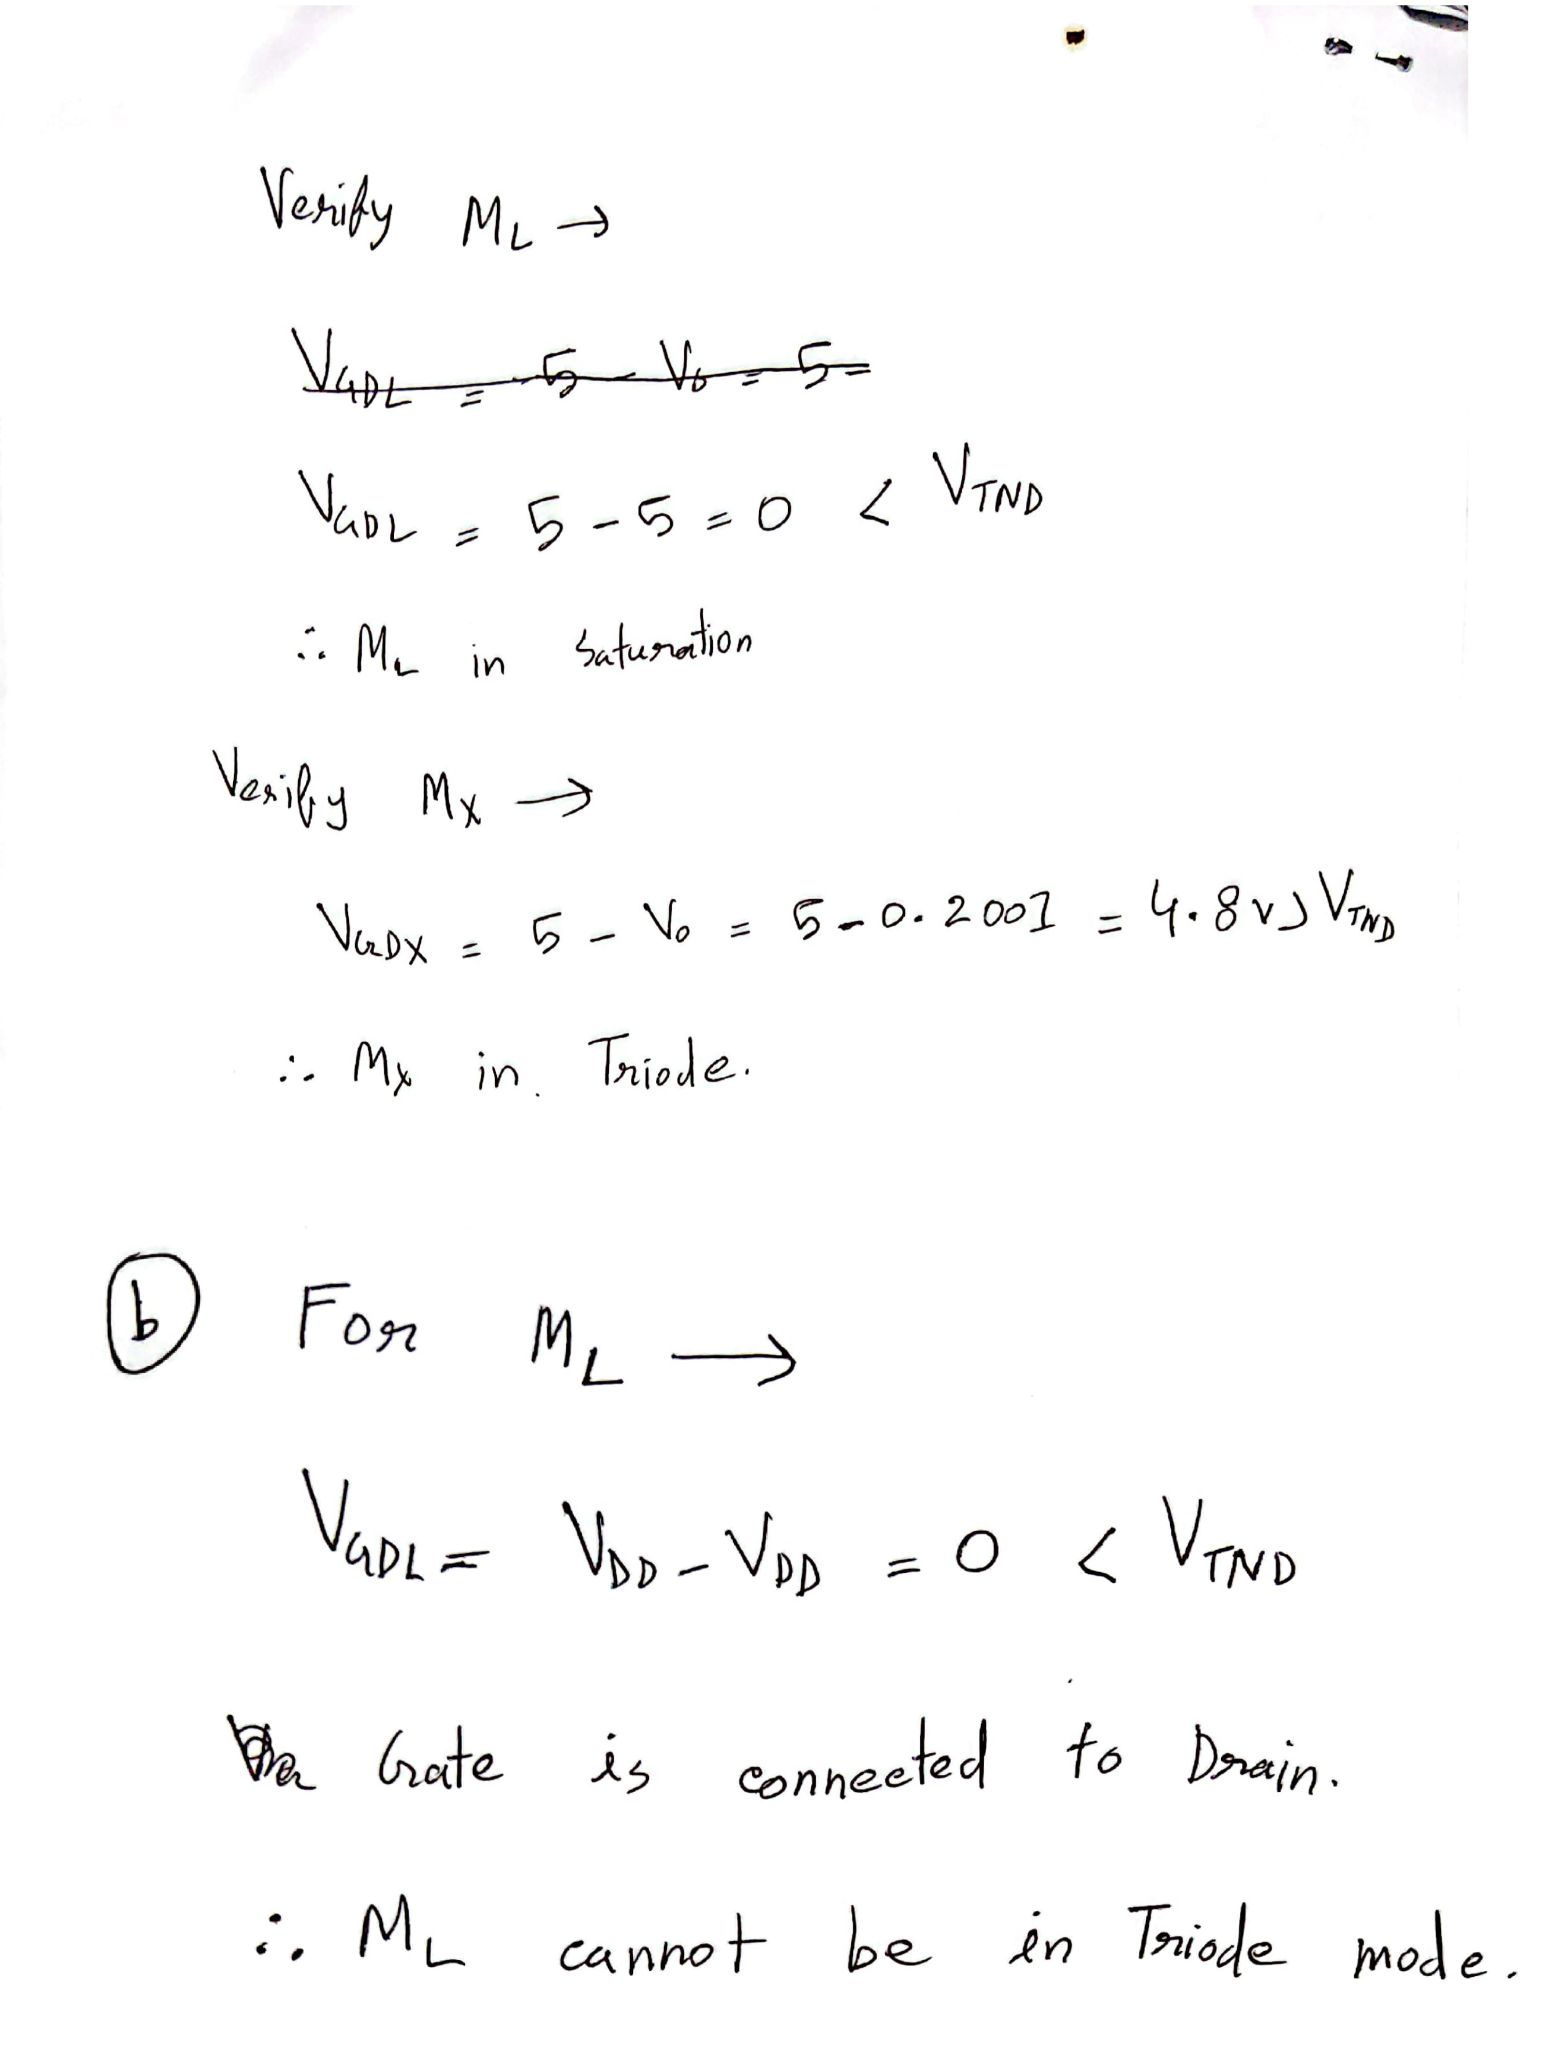 Verify M_L →
V_GDL = 5 - V_o = 5 =
V_GDL = 5 - 5 = 0 < V_TND
∴ M_L in Saturation
Verify M_X →
V_GDX = 5 - V_o = 5 - 0.2001 = 4.8 V > V_TND
∴ M_X in Triode.
b For M_L →
V_GDL = V_DD - V_DD = 0 < V_TND
Gate is connected to Drain.
∴ M_L cannot be in Triode mode.